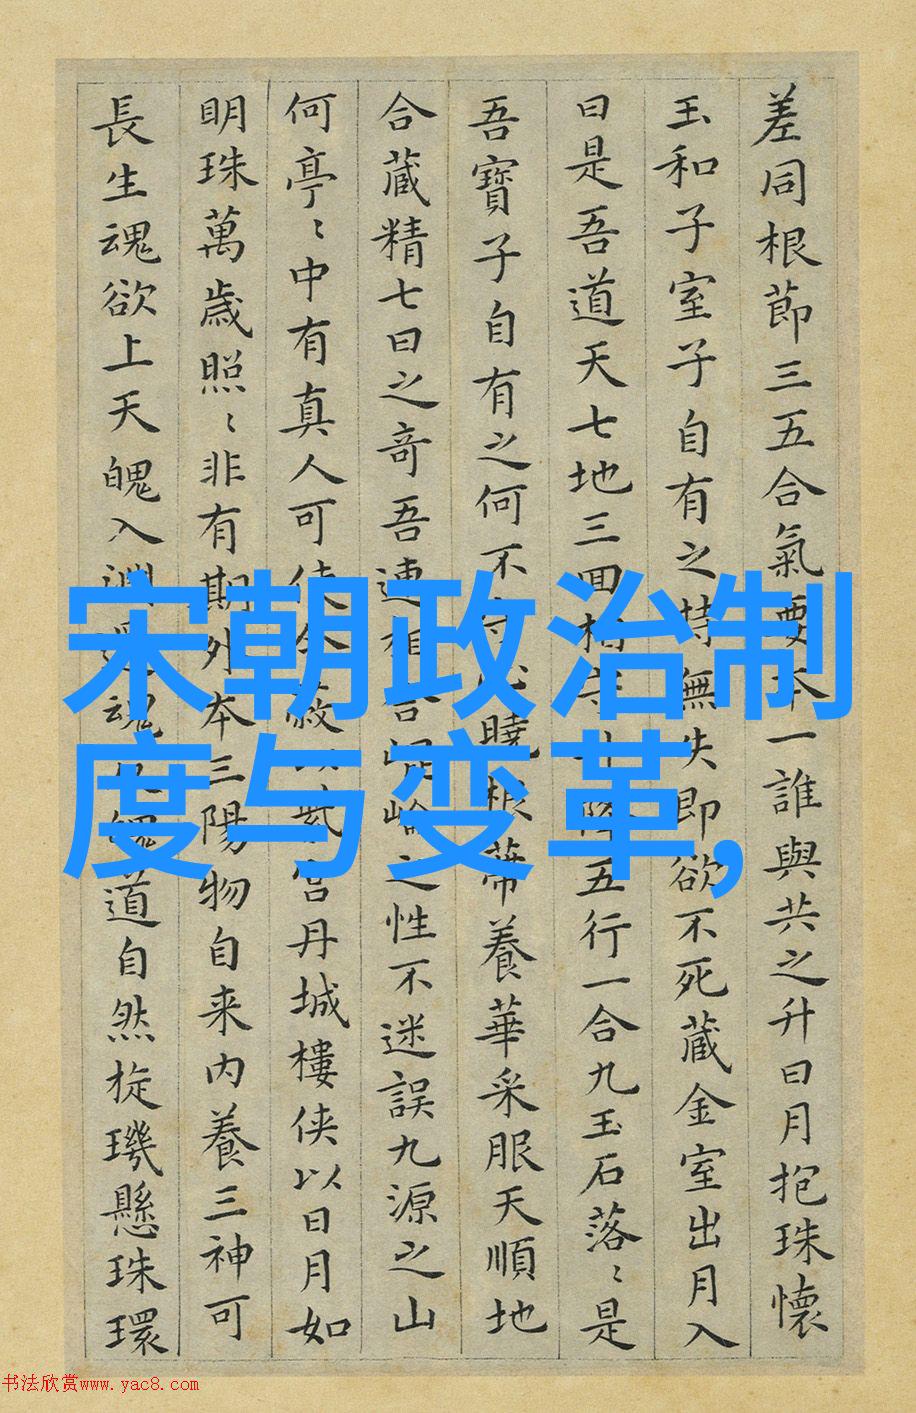 宋朝政治制
度与变革,
差同根節三五合氣要本一誰與共之升日月抱珠懷
玉和子室子自有之持無失即欲不死藏金室出月入
日是吾道天七地三回相守升降五行一合九玉石落〻是
吾寶子自有之何不守心曉根蒂養華采服天順地
合藏精七日之奇吾連相合崐崘之性不迷誤九源之山
何亭〻中有真人可使令蔽以紫宮丹城樓侠以日月如
明珠萬歲照〻非有期外本三陽物自来内養三神可
長生魂欲上天魄入淵還魂反魄道自然旋璣懸珠環
书法欣赏www.yac8.com